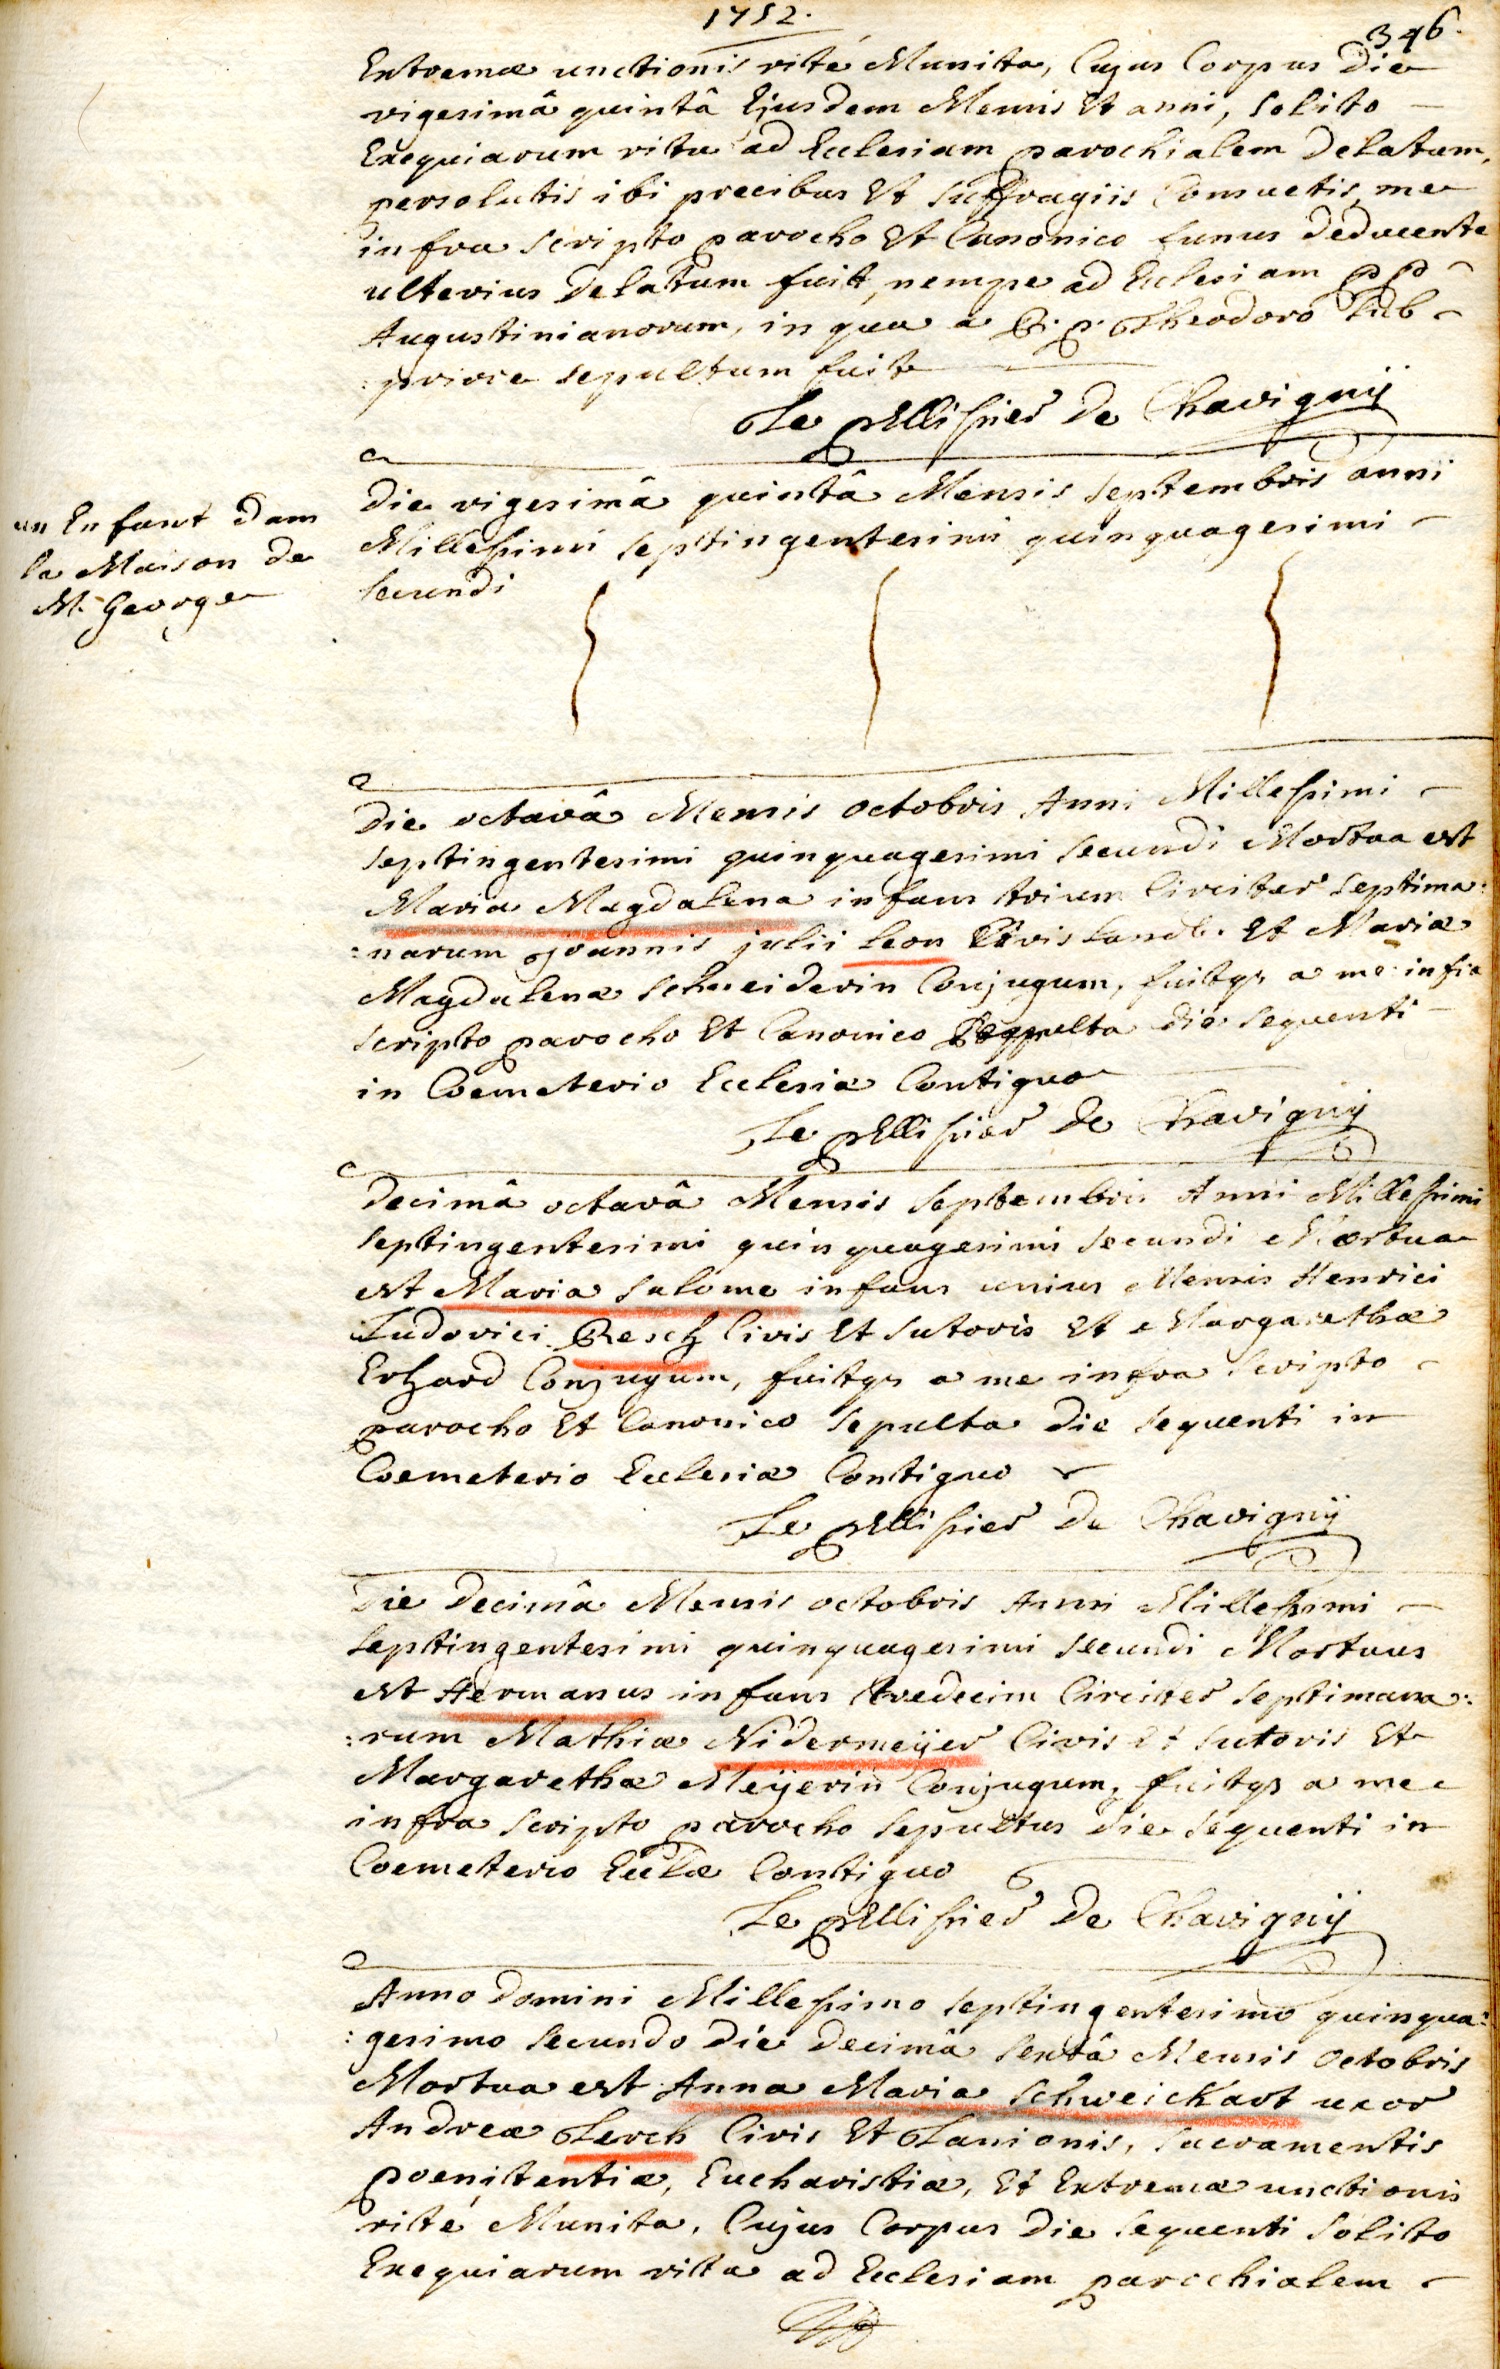 1752.
346.
Extremæ unctionis rité Munita, Cujus Corpus Die
vigesimâ quintâ Ejusdem Mensis Et anni, solito
Exequiarum ritu ad Ecclesiam parochialem Delatum,
persolutis ibi precibus Et suffragiis Consuetis, me
infra scripto parocho Et Canonico funus deducente
ulterius Delatum fuit, nempe ad Ecclesiam pp
Augustinianorum, in qua a R. P. Theodoro sub
: priore sepultum fuit
Le pEllissier De Chavignÿ
un Enfant dans
la Maison de
M. George
Die vigesimâ quintâ Mensis septembris anni
Millessimi septingentesimi quinquagesimi
secundi
Die octavâ Mensis octobris Anni Millessimi
septingentesimi quinquagesimi secundi Mortua est
Maria Magdalena infans trium Circiter septima:
:narum joannis julii Leon Civis Et Mariæ
Magdalenæ schneiderin Conjugum, fuitqs a me infra
scripto parocho Et Canonico sepulta die sequenti
in Coemeterio Ecclesiæ Contiguo
Le pEllissier De Chavignÿ
Decimâ octavâ Mensis septembris Anni Millessimi
septingentesimi quinquagesimi secundi Mortua
est Maria salome infans unius Mensis Henrici
Ludovici Resch Civis Et sutoris Et Margarethæ
Erhard Conjugum, fuitqs a me infra scripto
parocho Et Canonico sepulta Die sequenti in
Coemeterio Ecclesiæ Contiguo
Le pEllissier De Chavignÿ
Die Decimâ Mensis octobris Anni Millessimi
septingentesimi quinquagesimi secundi Mortuus
est Hermanus infans tredecim Circiter septimana:
:rum Mathiæ Nidermeÿer Civis Et sutoris Et
Margarethæ Meÿerin Conjugum, fuitqs a me
infra scripto parocho sepultus die sequenti in
Coemeterio Ecclæ Contiguo
Le pEllissier De Chavignÿ
Anno Domini Millessimo septingentesimo quinqua:
:gesimo secundo Die Decimâ sextâ Mensis octobris
Mortua est Anna Maria schweickart uxor
Andreæ Lerch Civis Et Lanionis, sacramentis
poenitentiæ, Eucharistiæ, Et Extremæ unctionis
rité Munita, Cujus Corpus Die sequenti solito
Exequiarum ritu ad Ecclesiam parochialem